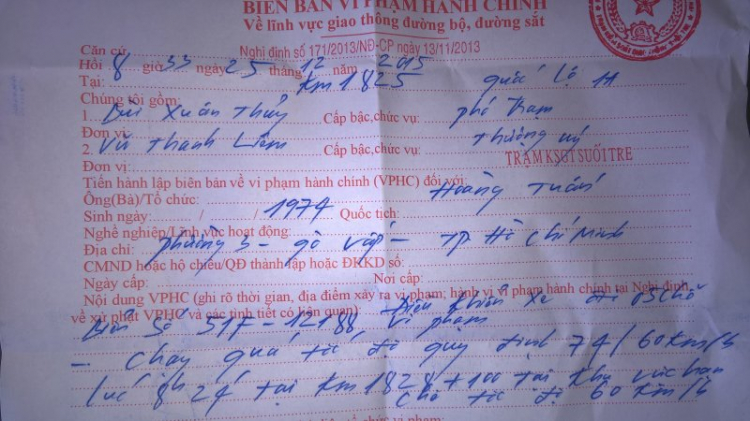 BIÊN BẢN VI PHẠM HÀNH CHÍNH
Về lĩnh vực giao thông đường bộ, đường sắt
Căn cứ Nghị định số 171/2013/NĐ-CP ngày 13/11/2013
Hồi 8 giờ 33 ngày 25 tháng 12 năm 2015
Tại: Km 1825 quốc lộ 1A
Chúng tôi gồm:
1. Bùi Xuân Thủy Cấp bậc,chức vụ: phó trạm
Đơn vị:
2. Vũ Thanh Liêm Cấp bậc,chức vụ: thượng uý
Đơn vị: TRẠM KSGT SUỐI TRE
Tiến hành lập biên bản về vi phạm hành chính (VPHC) đối với:
Ông(Bà)/Tổ chức: Hoàng Tuấn
Sinh ngày: / / 1974 Quốc tịch:
Nghề nghiệp/Lĩnh vực hoạt động:
Địa chỉ: phường 3 - gò vấp - TP Hồ Chí Minh
CMND hoặc hộ chiếu/QĐ thành lập hoặc ĐKKD số:
Ngày cấp: Nơi cấp:
Nội dung VPHC (ghi rõ thời gian, địa điểm xảy ra vi phạm; hành vi vi phạm hành chính tại Nghị định
về xử phạt VPHC và các tình tiết có liên quan) Điều khiển xe ôtô 05 chỗ
biển số 51F-12188 vi phạm
- chạy quá tốc độ quy định 74/60km/h
lúc 8h24' tại km1828+100 tại khu vực hạn
chế tốc độ 60km/h